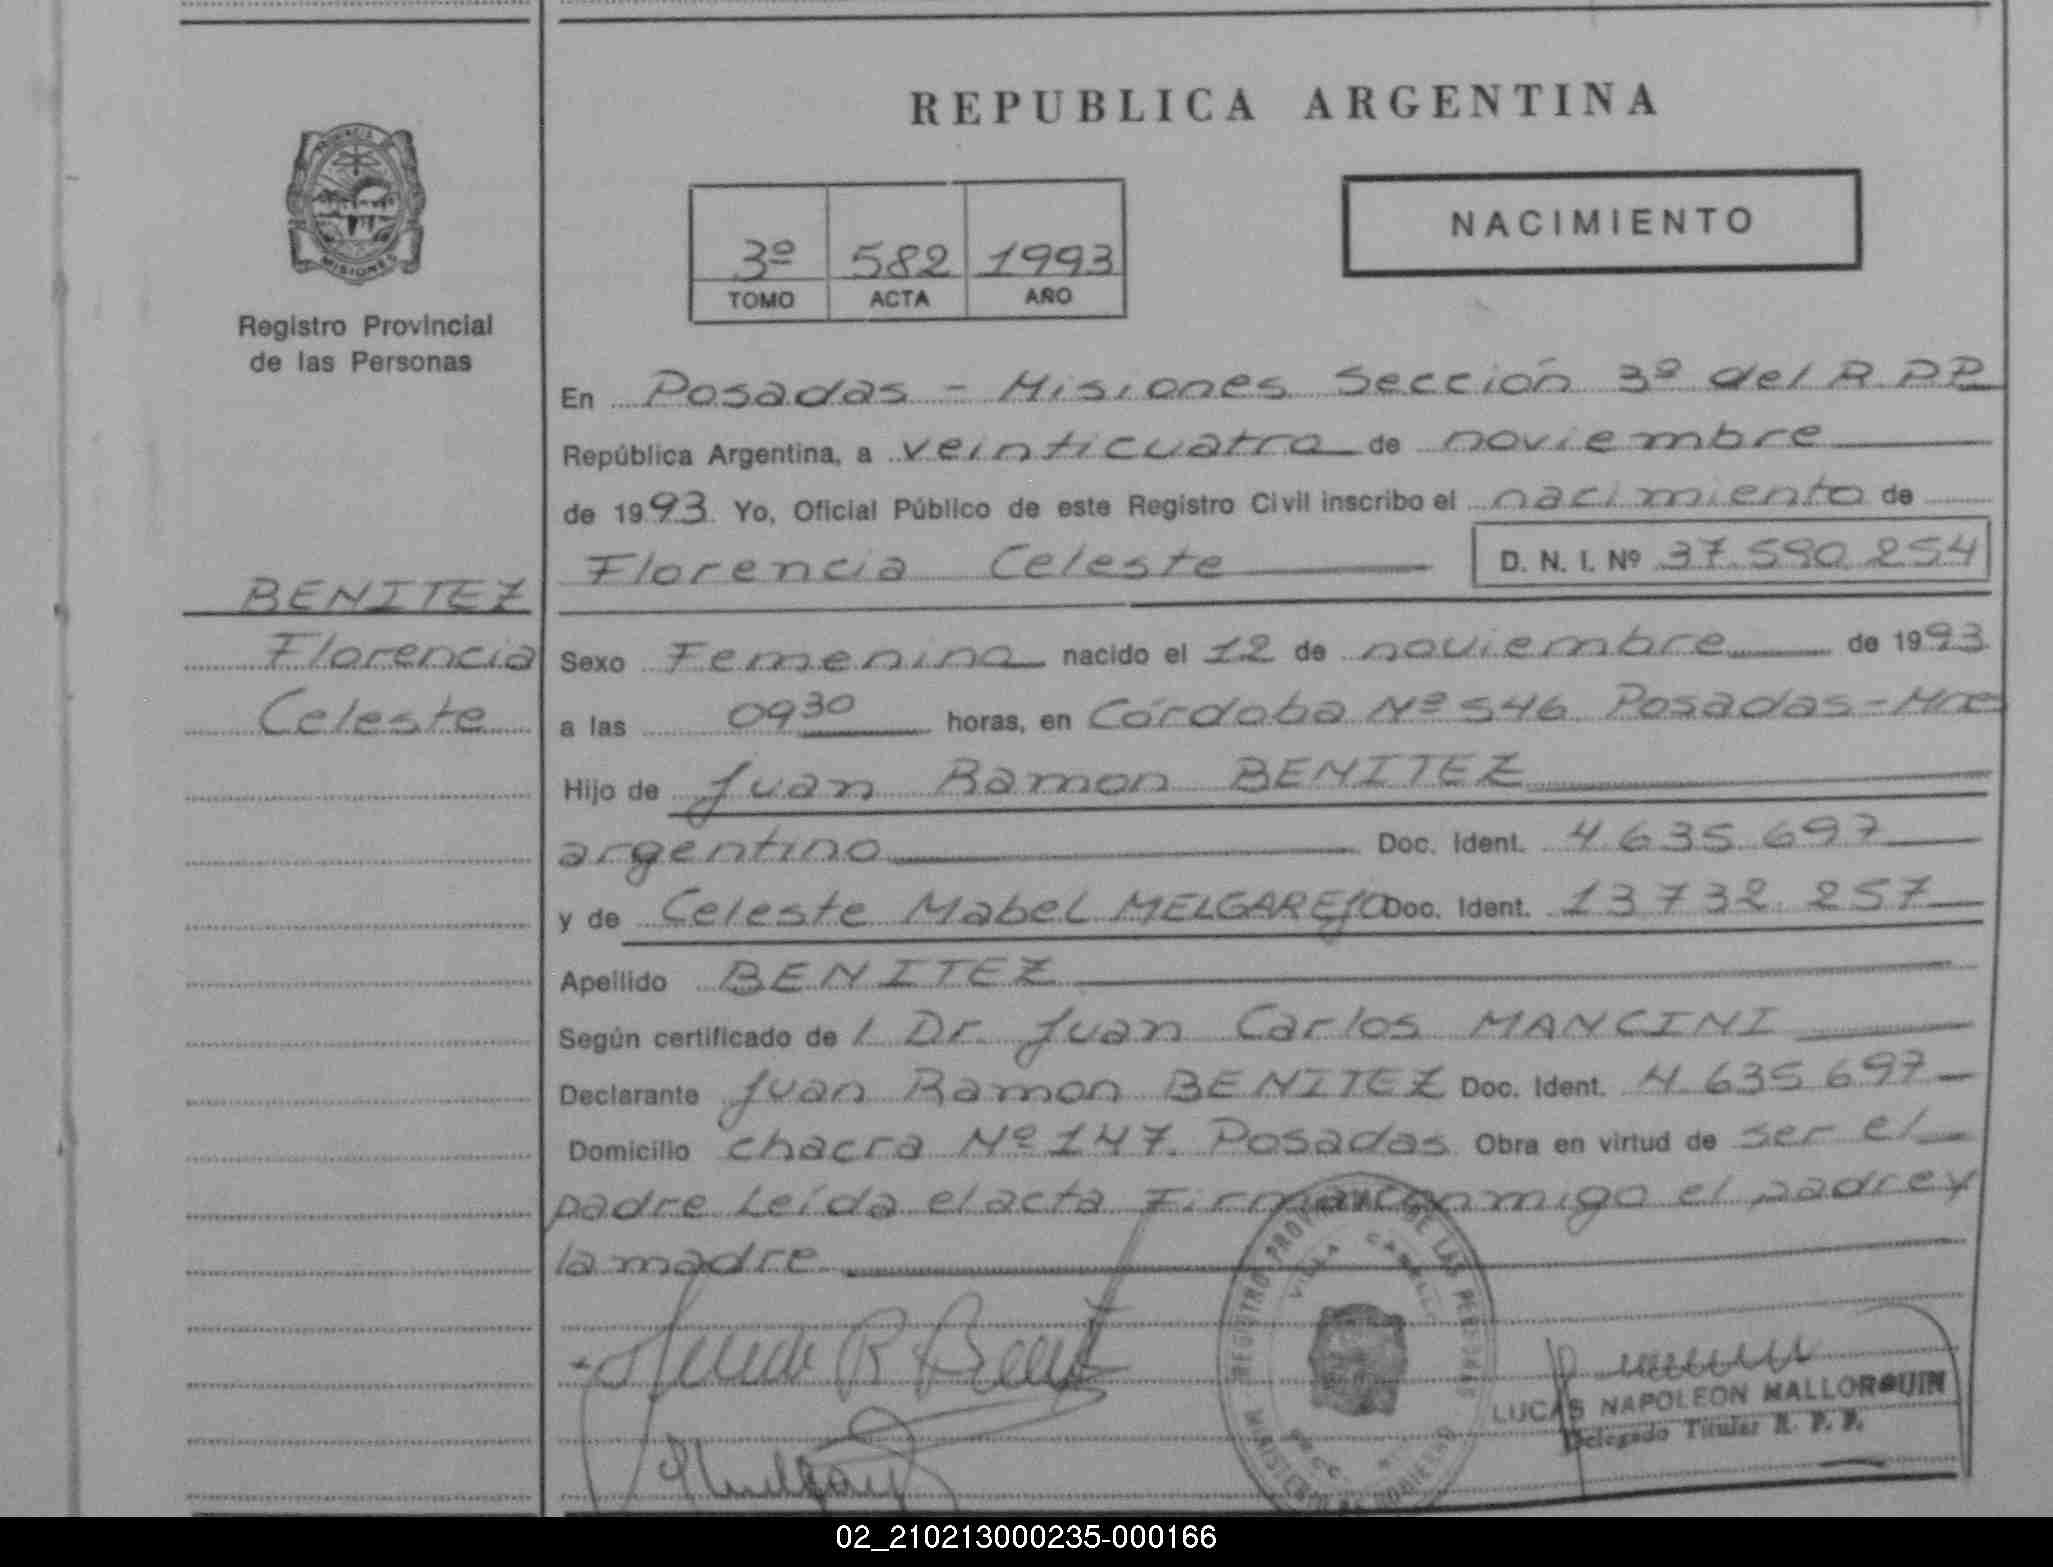 REPUBLICA ARGENTINA
PROVINCIA
MISIONES
Registro Provincial
de las Personas
3º 582 1993
TOMO ACTA AÑO
NACIMIENTO
En Posadas - Misiones Sección 3º del R P P
República Argentina, a veinticuatro de noviembre
de 1993. Yo, Oficial Público de este Registro Civil inscribo el nacimiento de
Florencia Celeste
D. N. I. Nº 37.590.254
BENITEZ
Florencia
Celeste
Sexo Femenino nacido el 12 de noviembre de 1993
a las 09 30 horas, en Córdoba Nº 546 Posadas - Mnes
Hijo de Juan Ramon BENITEZ
argentino Doc. Ident. 4.635.697
y de Celeste Mabel MELGAREJO Doc. Ident. 13.732.257
Apellido BENITEZ
Según certificado de l Dr. Juan Carlos MANCINI
Declarante Juan Ramon BENITEZ Doc. Ident. 4.635.697
Domicilio chacra Nº 147. Posadas Obra en virtud de ser el
padre Leída el acta Firman conmigo el padre y
la madre
REGISTRO PROVINCIAL DE LAS PERSONAS
VILLA CABELLO
MINISTERIO DE GOBIERNO
LUCAS NAPOLEON MALLORQUIN
Delegado Titular R. P. P.
02_210213000235-000166